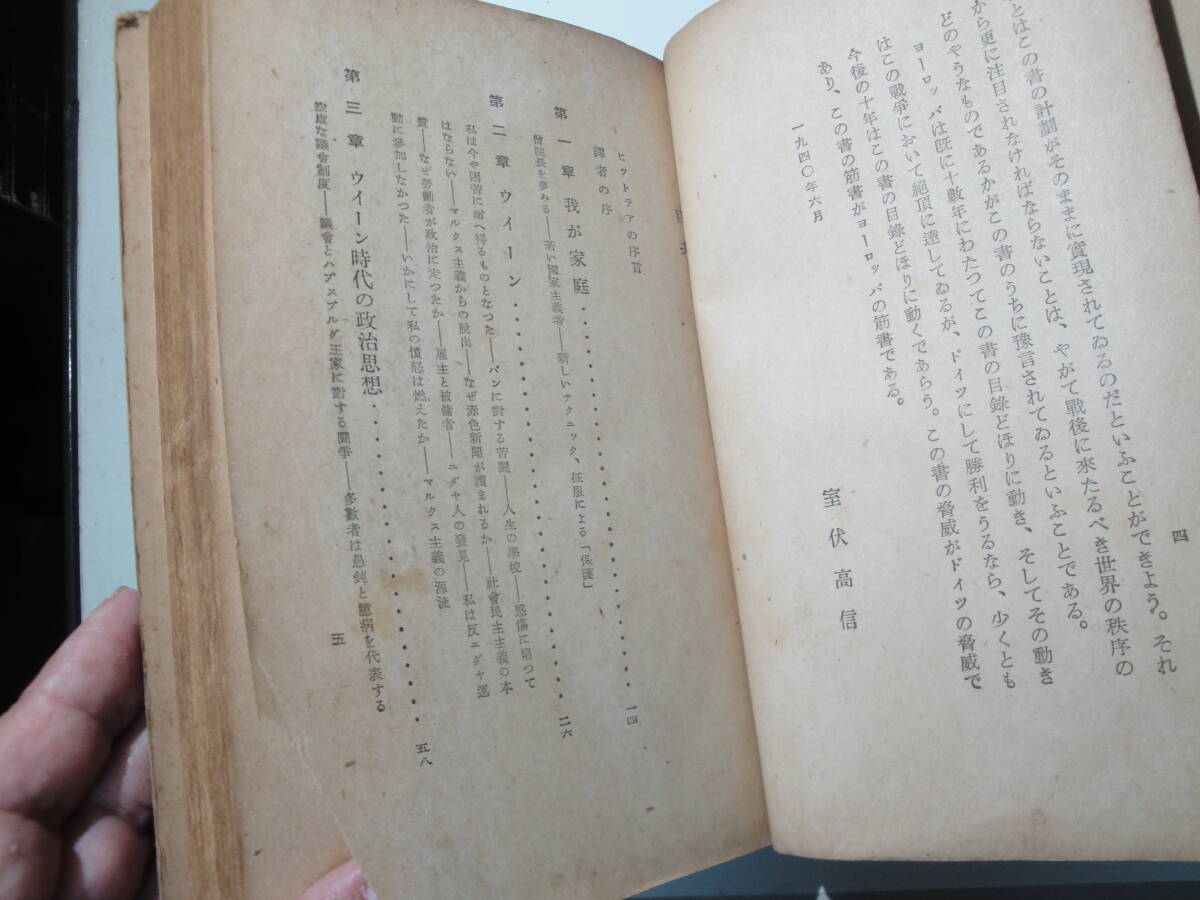 四
とはこの書の計劃がそのままに實現されてゐるのだといふことができよう。それ
から更に注目されなければならないことは、やがて戰後に來たるべき世界の秩序の
どのやうなものであるかがこの書のうちに豫言されてゐるといふことである。
ヨーロッパは既に十數年にわたつてこの書の目錄どほりに動き、そしてその動き
はこの戰爭において絕頂に達してゐるが、ドイツにして勝利をうるなら、少くとも
今後の十年はこの書の目錄どほりに動くであらう。この書の脅威がドイツの脅威で
あり、この書の筋書がヨーロッパの筋書である。
一九四〇年六月
室伏高信
ヒットラアの序言
譯者の序
第一章 我が家庭 一四
僧院長を夢みる——若い國家主義者——新しいテクニック、征服による「保護」
第二章 ウイーン 二六
私は今や困苦に耐へ得るものとなつた——パンに對する苦鬪——人生の學校——感傷に陷つて
はならない——マルクス主義からの脫出——なぜ赤色新聞が讀まれるか——社會民主主義の本
質——なぜ勞働者が政治に定つたか——雇主と被傭者——ユダヤ人の發見——私は反ユダヤ運
動に參加しなかつた——いかにして私の憤怒は燃えたか——マルクス主義の源流
第三章 ウイーン時代の政治思想 五八
空虛な議會制度——議會とハプスブルグ王家に對する鬪爭——多數者は愚鈍と臆病を代表する
五